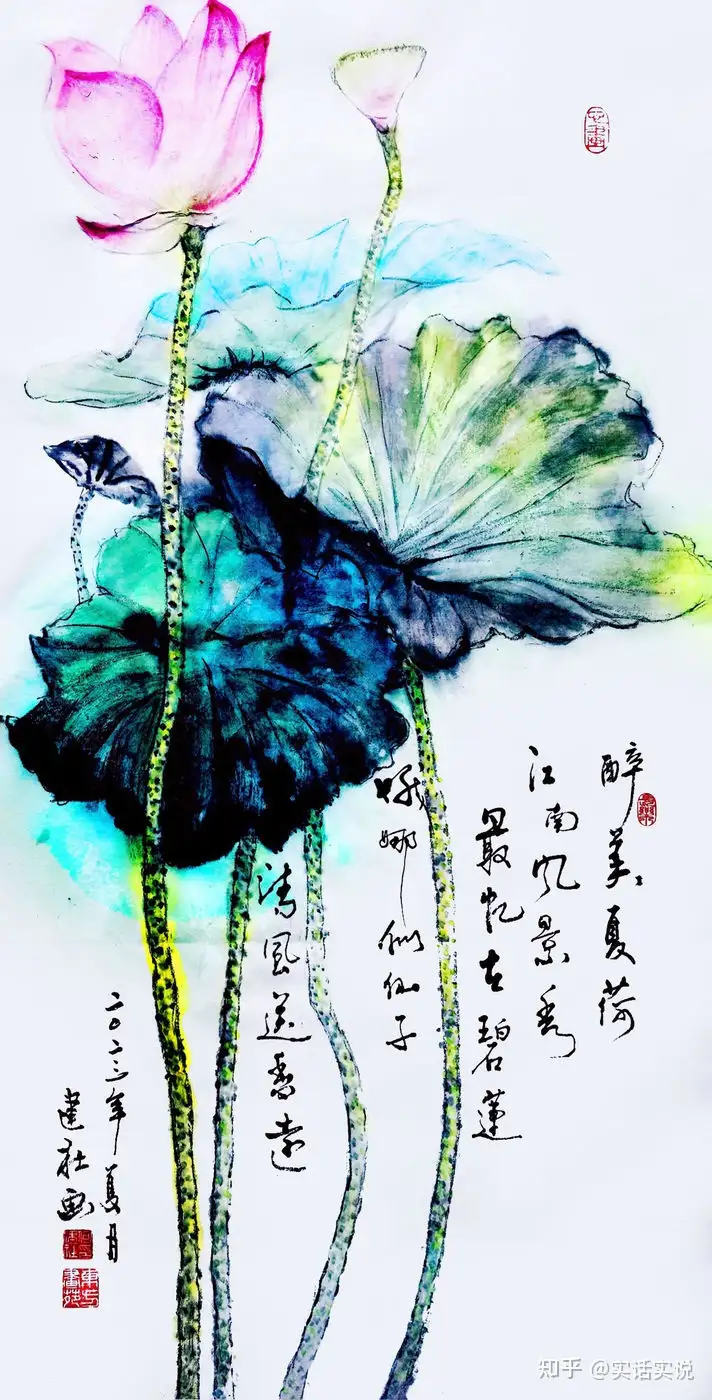 醉美夏荷
江南风景秀
最忆碧蓮
婀娜似仙子
清風送香遠
二〇二三年夏月
建社画
知乎 @实话实说